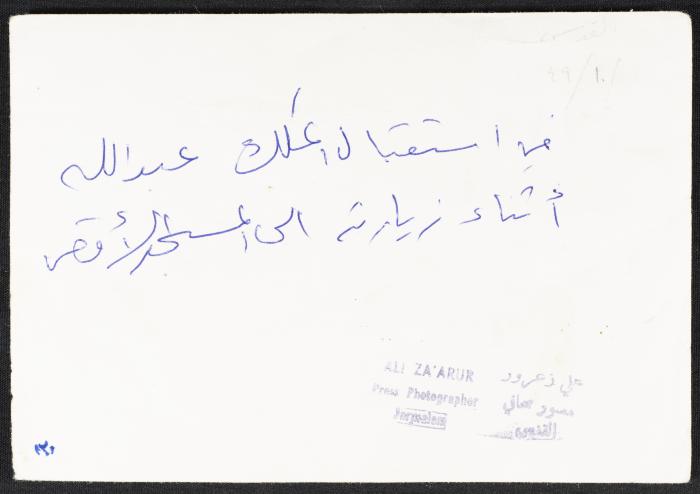 القدس
٤٩/١٠/
في استقبال الملك عبدالله
أثناء زيارته الى المسجد الأقصى
ALI ZA'ARUR
Press Photographer
Jerusalem
علي زعرور
مصور صحافي
القدس
١٣٠